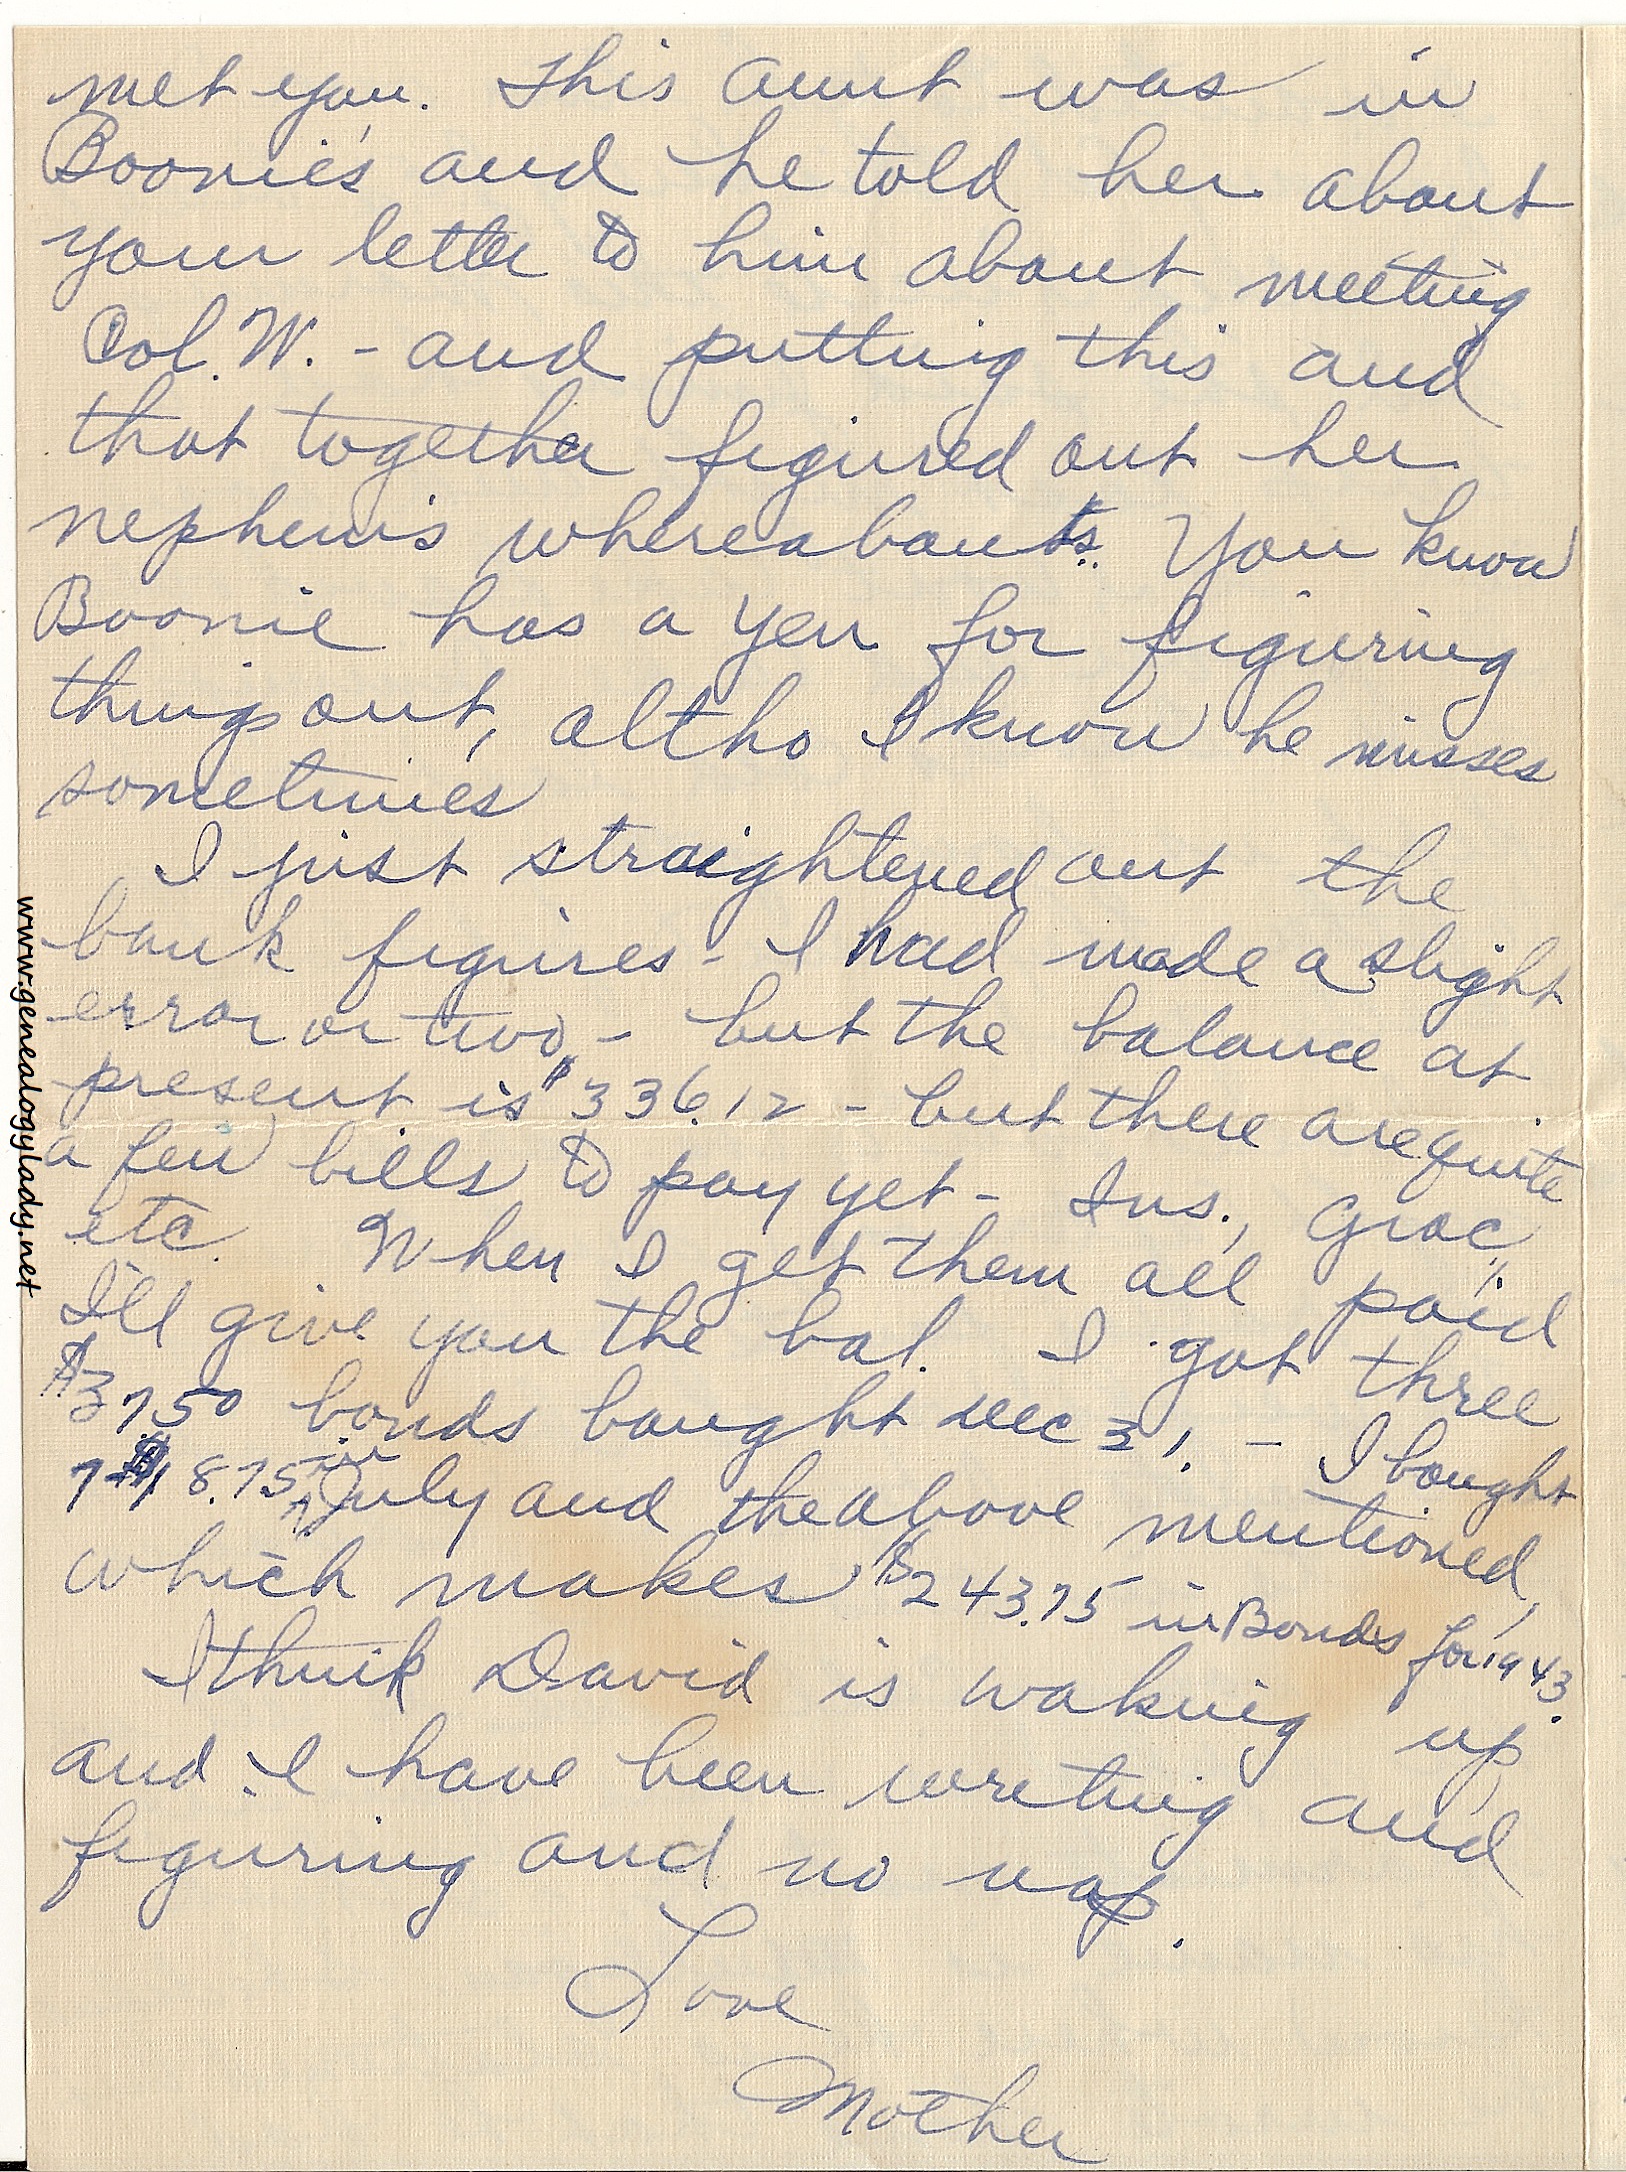 met you. This aunt was in
Boonie's and he told her about
your letter to him about meeting
Col. W. - and putting this and
that together figured out her
nephew's whereabouts. You know
Boonie has a yen for figuring
things out, altho I know he misses
sometimes
I just straightened out the
bank figures - I had made a slight
error or two, - but the balance at
present is $336.12 - but there are quite
a few bills to pay yet - Ins., Groc.,
etc. When I get them all paid
I'll give you the bal. I got three
$37.50 bonds bought Dec 31. - I bought
7 $18.75 in July and the above mentioned,
which makes $243.75 in Bonds for 1943.
I think David is waking up
and I have been writing and
figuring and no nap.
Love
Mother
www.genealogylady.net